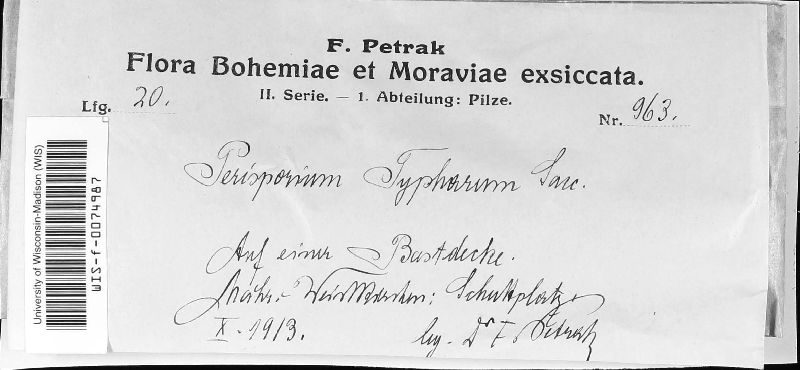 F. Petrak
Flora Bohemiae et Moraviae exsiccata.
II. Serie. — 1. Abteilung: Pilze.
Lfg. 20.
Nr. 963.
Perisporium Typharum Sacc.
Auf einer Bastdecke.
Mähr.- Weisskirchen: Schuttplatz
X. 1913.
leg. Dr F. Petrak
University of Wisconsin-Madison (WIS)
WIS-f-0074987